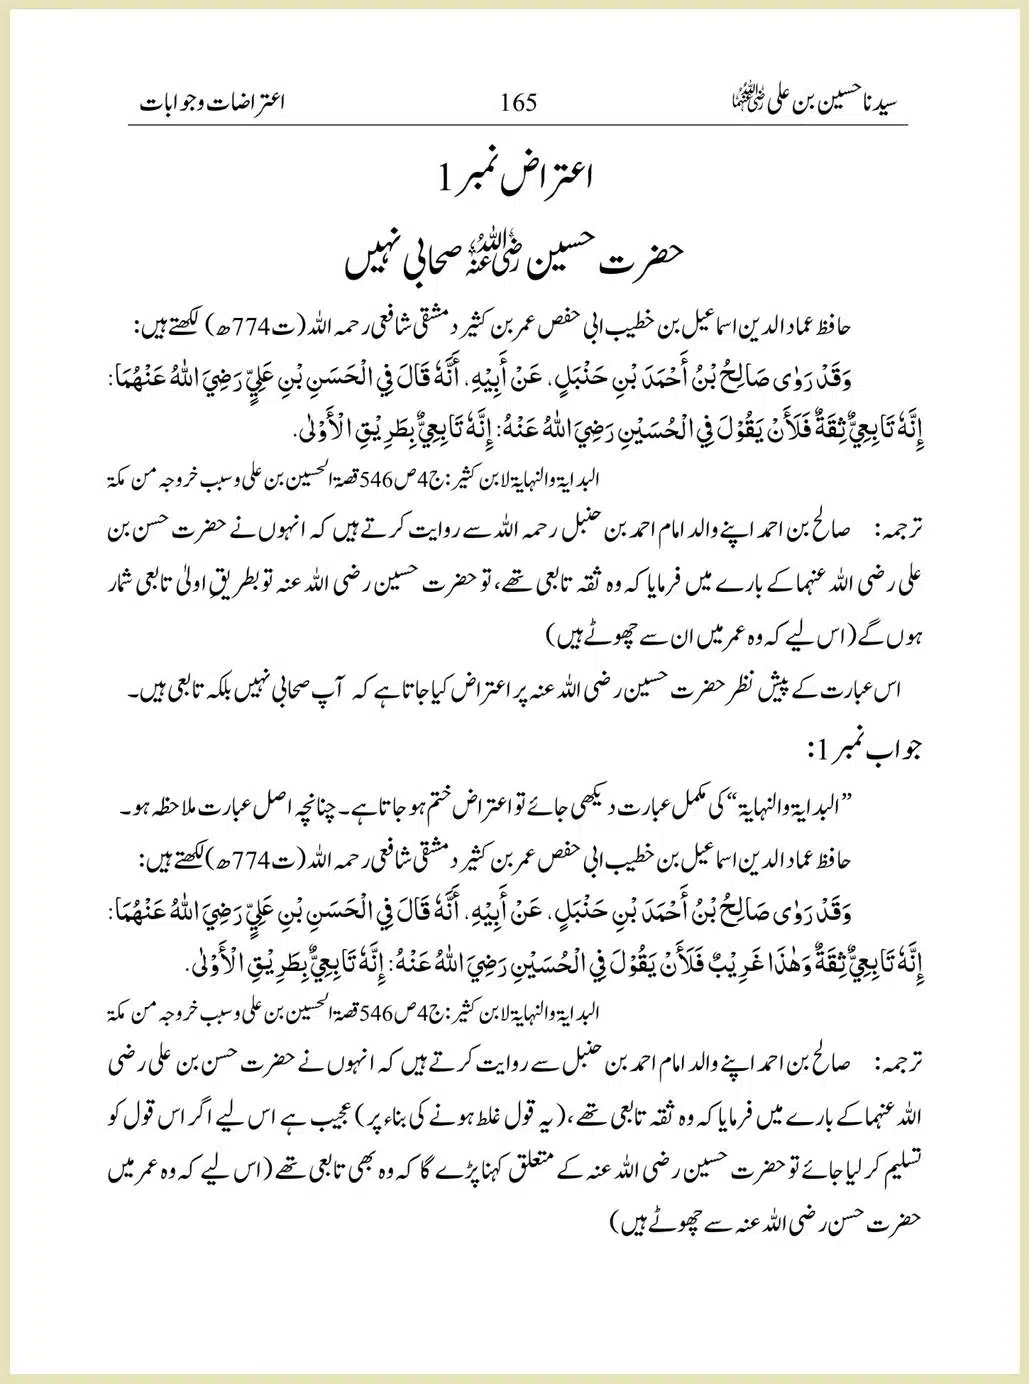 سیدنا حسین بن علی رضی اللہ عنہما 165 اعتراضات و جوابات
اعتراض نمبر 1
حضرت حسین رضی اللہ عنہ صحابی نہیں
حافظ عماد الدین اسماعیل بن خطیب ابی حفص عمر بن کثیر دمشقی شافعی رحمہ اللہ (ت774ھ) لکھتے ہیں:
وَقَدْ رَوٰى صَالِحُ بْنُ أَحْمَدَ بْنِ حَنْبَلٍ، عَنْ أَبِيْهِ، أَنَّهٗ قَالَ فِي الْحَسَنِ بْنِ عَلِيٍّ رَضِيَ اللهُ عَنْهُمَا:
إِنَّهٗ تَابِعِيٌّ ثِقَةٌ فَلَأَنْ يَقُوْلَ فِي الْحُسَيْنِ رَضِيَ اللهُ عَنْهُ: إِنَّهٗ تَابِعِيٌّ بِطَرِيْقِ الْأَوْلٰى.
البدایۃ والنہایۃ لابن کثیر: ج4ص546 قصۃ الحسین بن علی وسبب خروجہ من مکۃ
ترجمہ: صالح بن احمد اپنے والد امام احمد بن حنبل رحمہ اللہ سے روایت کرتے ہیں کہ انہوں نے حضرت حسن بن
علی رضی اللہ عنہما کے بارے میں فرمایا کہ وہ ثقہ تابعی تھے، تو حضرت حسین رضی اللہ عنہ تو بطریقِ اولیٰ تابعی شمار
ہوں گے (اس لیے کہ وہ عمر میں ان سے چھوٹے ہیں)
اس عبارت کے پیش نظر حضرت حسین رضی اللہ عنہ پر اعتراض کیا جاتا ہے کہ آپ صحابی نہیں بلکہ تابعی ہیں۔
جواب نمبر 1:
”البدایۃ والنہایۃ“ کی مکمل عبارت دیکھی جائے تو اعتراض ختم ہو جاتا ہے۔ چنانچہ اصل عبارت ملاحظہ ہو۔
حافظ عماد الدین اسماعیل بن خطیب ابی حفص عمر بن کثیر دمشقی شافعی رحمہ اللہ (ت774ھ) لکھتے ہیں:
وَقَدْ رَوٰى صَالِحُ بْنُ أَحْمَدَ بْنِ حَنْبَلٍ، عَنْ أَبِيْهِ، أَنَّهٗ قَالَ فِي الْحَسَنِ بْنِ عَلِيٍّ رَضِيَ اللهُ عَنْهُمَا:
إِنَّهٗ تَابِعِيٌّ ثِقَةٌ وَهٰذَا غَرِيْبٌ فَلَأَنْ يَقُوْلَ فِي الْحُسَيْنِ رَضِيَ اللهُ عَنْهُ: إِنَّهٗ تَابِعِيٌّ بِطَرِيْقِ الْأَوْلٰى.
البدایۃ والنہایۃ لابن کثیر: ج4ص546 قصۃ الحسین بن علی وسبب خروجہ من مکۃ
ترجمہ: صالح بن احمد اپنے والد امام احمد بن حنبل سے روایت کرتے ہیں کہ انہوں نے حضرت حسن بن علی رضی
اللہ عنہما کے بارے میں فرمایا کہ وہ ثقہ تابعی تھے، (یہ قول غلط ہونے کی بناء پر) عجیب ہے اس لیے اگر اس قول کو
تسلیم کر لیا جائے تو حضرت حسین رضی اللہ عنہ کے متعلق کہنا پڑے گا کہ وہ بھی تابعی تھے (اس لیے کہ وہ عمر میں
حضرت حسن رضی اللہ عنہ سے چھوٹے ہیں)